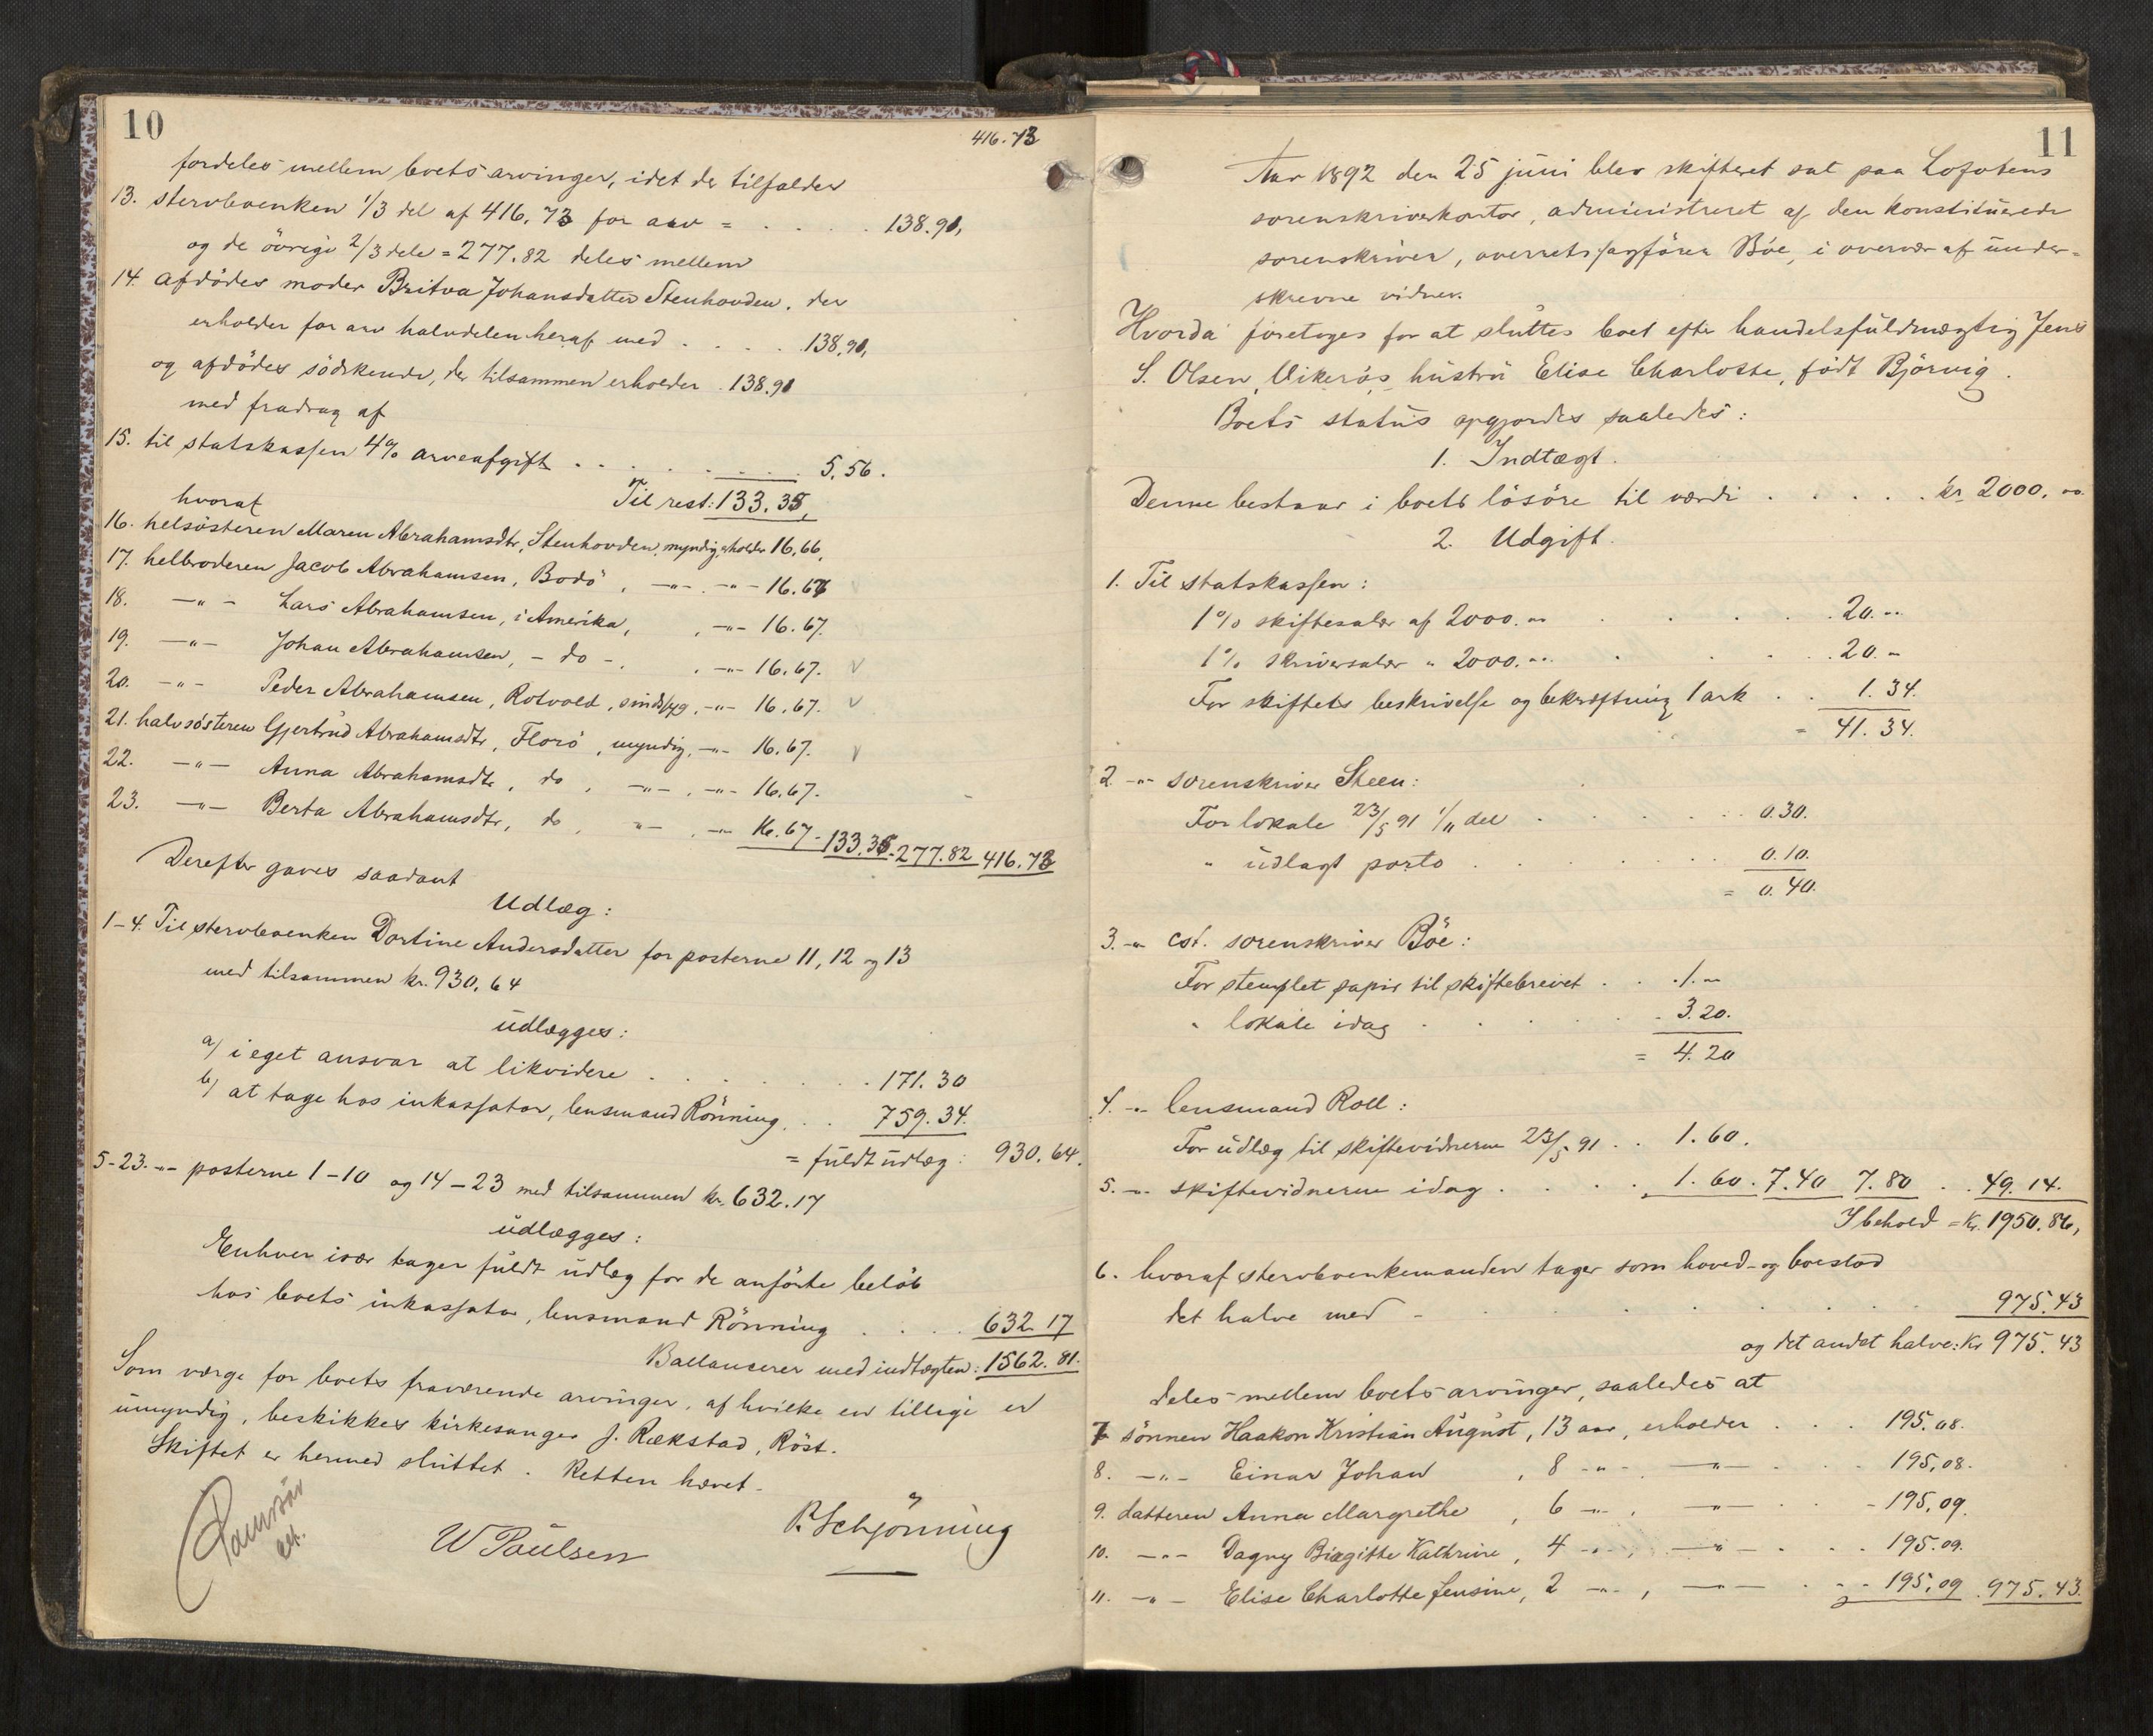 10
416.73
fordeles mellem boets arvinger, idet der tilfalder
13. stervboenken 1/3 del af 416.73 for arv = . . . . 138.91,
og de övrige 2/3 dele = 277.82 deles mellem
14. afdödes moder Britva Johansdatter Stenhovden, der
erholder for arv halvdelen heraf med . . . . 138.91,
og afdödes södskende, der tilsammen erholder . 138.91
med fradrag af
15. til statskassen 4% arveafgift . . . . . . . 5.56.
Til rest: 133.35,
hvoraf
16. helsösteren Maren Abrahamsdtr, Stenhovden, myndig, erholder 16.66,
17. helbroderen Jacob Abrahamsen, Bodö, —"— . —"— 16.67
18. —"— Lars Abrahamsen, i Amerika, , —"— 16.67.
19. —"— Johan Abrahamsen, — do —, . —"— 16.67.
20. —"— Peder Abrahamsen, Rotvold, sindssyg, —"— 16.67.
21. halvsösteren Gjertrud Abrahamsdtr, Florö, myndig, —"— 16.67.
22. —"— Anna Abrahamsdtr, do , —"— , —"— 16.67.
23. —"— Berta Abrahamsdtr, do , "— , —"— 16.67 - 133.35 - 277.82 416.73
Derefter gaves saadant
Udlæg:
1-4. Til stervboenken Dortine Andersdatter for posterne 11, 12 og 13
med tilsammen kr. 930.64
udlægges:
a) i eget ansvar at likvidere . . . . . . . 171.30
b) at tage hos inkassator, lensmand Rönning . . 759.34.
= fuldt udlæg: 930.64.
5-23. —"— posterne 1-10 og 14-23 med tilsammen kr. 632.17
udlægges:
Enhver især tager fuldt udlæg for de anförte belöb
hos boets inkassator, lensmand Rönning . . . . 632.17
Ballancerer med indtægten: 1562.81.
Som værge for boets fraværende arvinger, af hvilke en tillige er
umyndig, beskikkes kirkesanger J. Rækstad, Röst.
Skiftet er hermed sluttet. Retten hævet.
cst.
W Paulsen
P. Schjönning
11
Aar 1892 den 25 juni blev skifteret sat paa Lofotens
sorenskriverkontor, administreret af den konstituerede
sorenskriver, overretssagförer Böe, i overvær af under-
skrevne vidner.
Hvorda foretoges for at sluttes boet efter handelsfuldmægtig Jens
S. Olsen Vikeräs hustru Elise Charlotte, födt Björvig.
Boets status opgjordes saaledes:
1. Indtægt.
Denne bestaar i boets lösöre til værdi . . . . . kr. 2000.00
2. Udgift.
1. Til statskassen:
1% skiftesalær af 2000.00 . . . . 20.00
1% skriversalær " 2000.00 . . . . 20.00
For skiftets beskrivelse og bekræftning 1 ark . . 1.34.
= 41.34.
2. —"— sorenskriver Steen:
For lokale 23/5 91 1/11 del . . . . . . 0.30.
" udlagt porto . . . . . . . 0.10.
= 0.40.
3. —"— cst. sorenskriver Böe:
For stemplet papir til skiftebrevet . . . 1.00
" lokale idag . . . . . . 3.20.
= 4.20
4. —"— lensmand Roll:
For udlæg til skiftevidnerne 23/5 91 . . 1.60.
5. —"— skiftevidnerne idag . . . . . 1.60. 7.40 7.80 . . 49.14.
I behold = Kr. 1950.86,
6. hvoraf stervboenkemanden tager som hoved- og boeslod
det halve med - . . . . . . . 975.43
og det andet halve: Kr 975.43
deles mellem boets arvinger, saaledes at
7 sönnen Haakon Kristian August, 13 aar, erholder . . . 195.08.
8. —"— Einar Johan , 8 —"— , —"— . . . 195.08.
9. datteren Anna Margrethe , 6 —"— , —"— . . - 195.09.
10. —"— Dagny Birgitte Kathrine, 4 —"— , —"— . . . 195.09.
11. —"— Elise Charlotte Jensine, 2 —"— , —"— . . . 195.09 . 975.43.